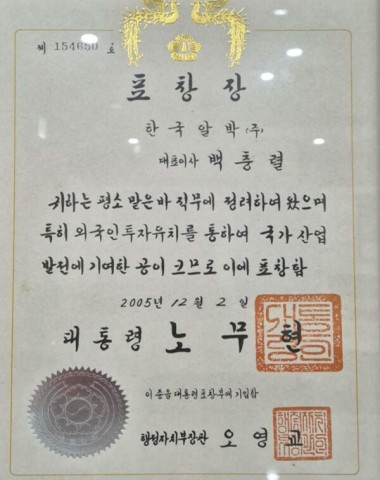 제 154650 호
표 창 장
한국알박(주)
대표이사 백충렬
귀하는 평소 맡은바 직무에 정려하여 왔으며
특히 외국인투자유치를 통하여 국가 산업
발전에 기여한 공이 크므로 이에 표창함
2005년 12월 2일
대통령 노무현
이 증을 대통령표창부에 기입함
행정자치부장관 오영교